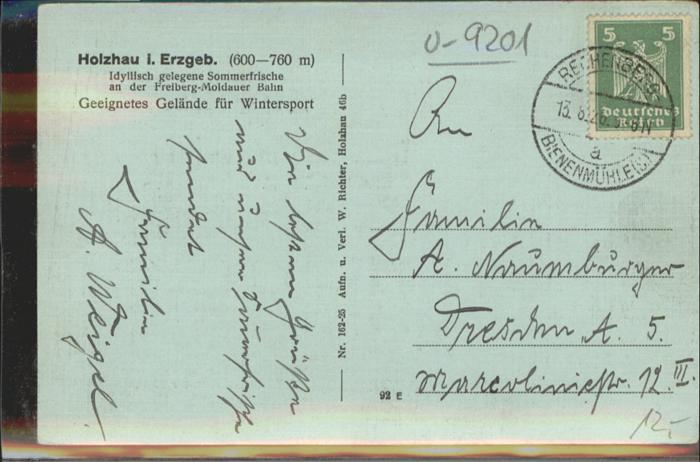 Holzhau i. Erzgeb. (600—760 m)
Idyllisch gelegene Sommerfrische
an der Freiberg-Moldauer Bahn
Geeignetes Gelände für Wintersport
Die besten Grüße
aus unserer Sommerfrische
sendet
Familie
A. Weigel
Nr. 162-25 Aufn. u. Verl. W. Richter, Holzhau 46b
92 E
U-9201
5 5
Deutsches
Reich
RECHENBERG-
13. 8.
BIENENMÜHLE
a
An
Familie
A. Naumburger
Dresden A. 5.
Marcolinistr. 12 III.
12,-